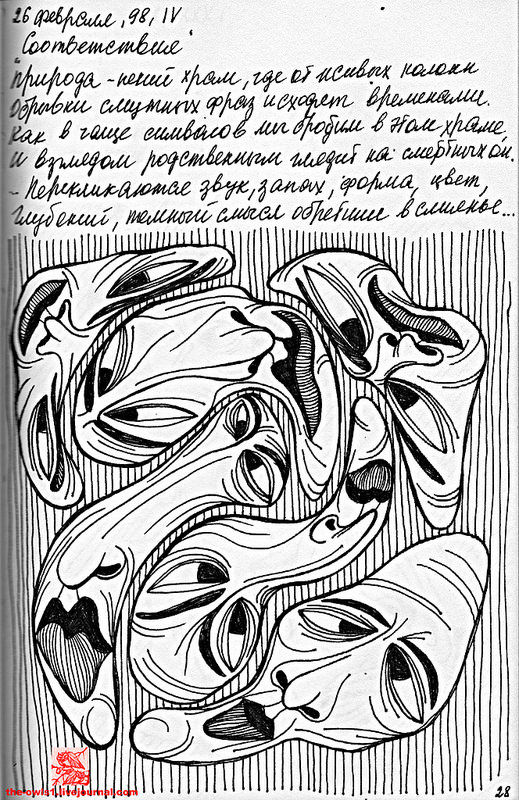 26 февраля, 98, IV
"Соответствия"
"Природа - некий храм, где от живых колонн
Обрывки смутных фраз исходят временами.
Как в чаще символов мы бродим в этом храме,
И взглядом родственным глядит на смертных он.
- Перекликаются звук, запах, форма, цвет,
Глубокий, темный смысл обретшие в слиянье...
the-owls1.livejournal.com
28